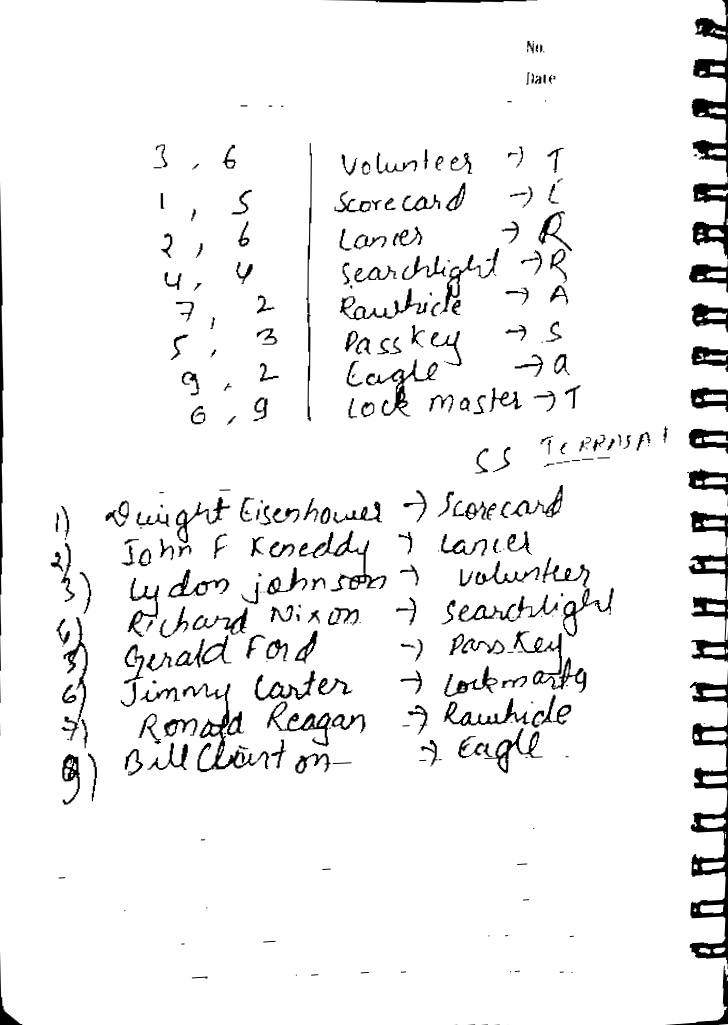 No.
Date
3 , 6 | Volunteer → T
1 , 5 | Scorecard → C
2 , 6 | Lancer → R
4 , 4 | Searchlight → R
7 , 2 | Rawhide → A
5 , 3 | Pass Key → S
9 , 2 | Eagle → a
6 , 9 | Lock master → T
SS
1) Dwight Eisenhower → Scorecard
2) John F Keneddy → Lancer
3) Lydon johnson → Volunteer
Richard Nixon → Searchlight
5) Gerald Ford → Pass Key
6) Jimmy Carter →
7) Ronald Reagan → Rawhide
9) Bill Clinton → Eagle